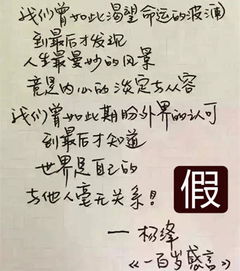 我们曾如此渴望命运的波澜
到最后才发现
人生最曼妙的风景
竟是内心的淡定与从容
我们曾如此期盼外界的认可
到最后才知道
世界是自己的
与他人毫无关系!
假
— 杨绛
《一百岁感言》